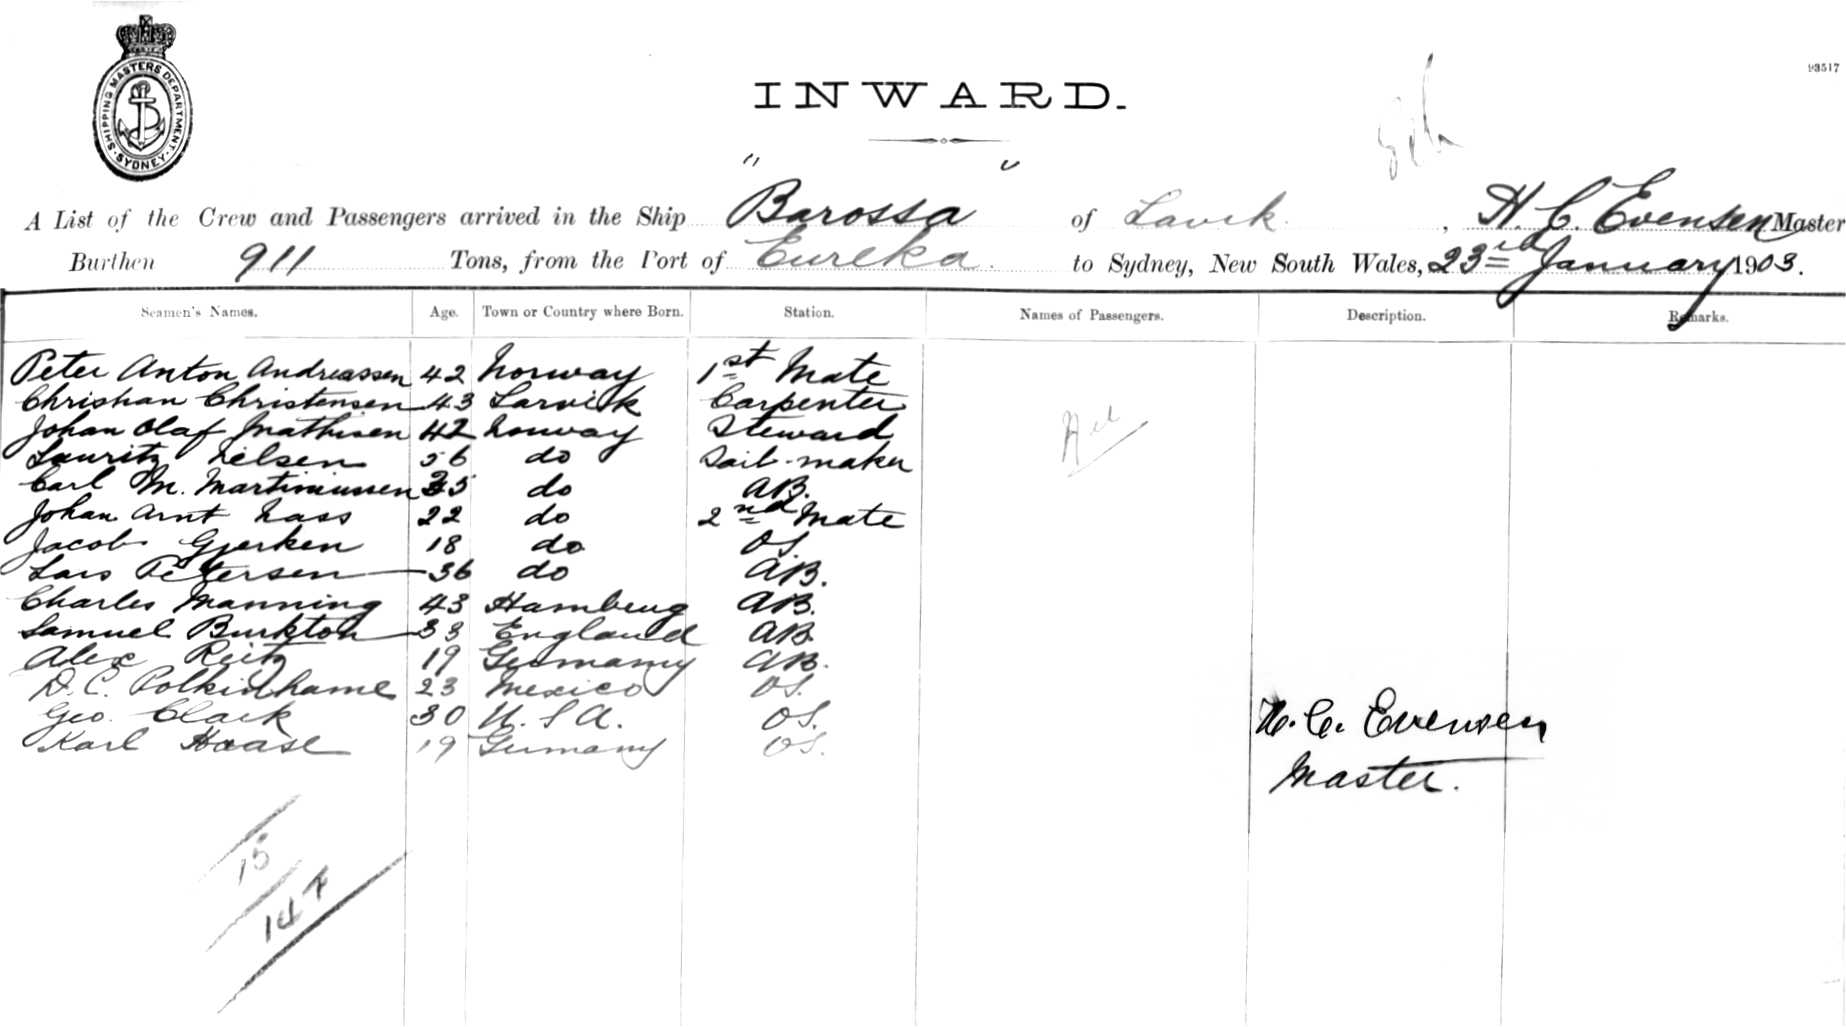 SHIPPING MASTERS DEPARTMENT. SYDNEY
93517
INWARD.
A List of the Crew and Passengers arrived in the Ship "Barossa" of Lavik, H. C. Evensen Master
Burthen 911 Tons, from the Port of Eureka to Sydney, New South Wales, 23rd January 1903.
Seamen's Names. Age. Town or Country where Born. Station. Names of Passengers. Description. Remarks.
Peter Anton Andreassen 42 Norway 1st Mate
Christian Christensen 43 Larvik Carpenter
Johan Olaf Mathisen 42 Norway Steward
Lauritz Nelsen 56 do Sail-maker
Carl M. Martiniussen 35 do AB.
Johan Arnt Nass 22 do 2nd Mate
Jacob Gjerken 18 do OS.
Lars Petersen 36 do AB.
Charles Manning 43 Hamburg AB.
Samuel Burkton 33 England AB
Alex Reitz 19 Germany AB.
D. C. Polkinhame 23 Mexico OS.
Geo. Clark 30 U.S.A. OS.
Karl Haase 19 Germany OS.
H. C. Evensen
Master.
15